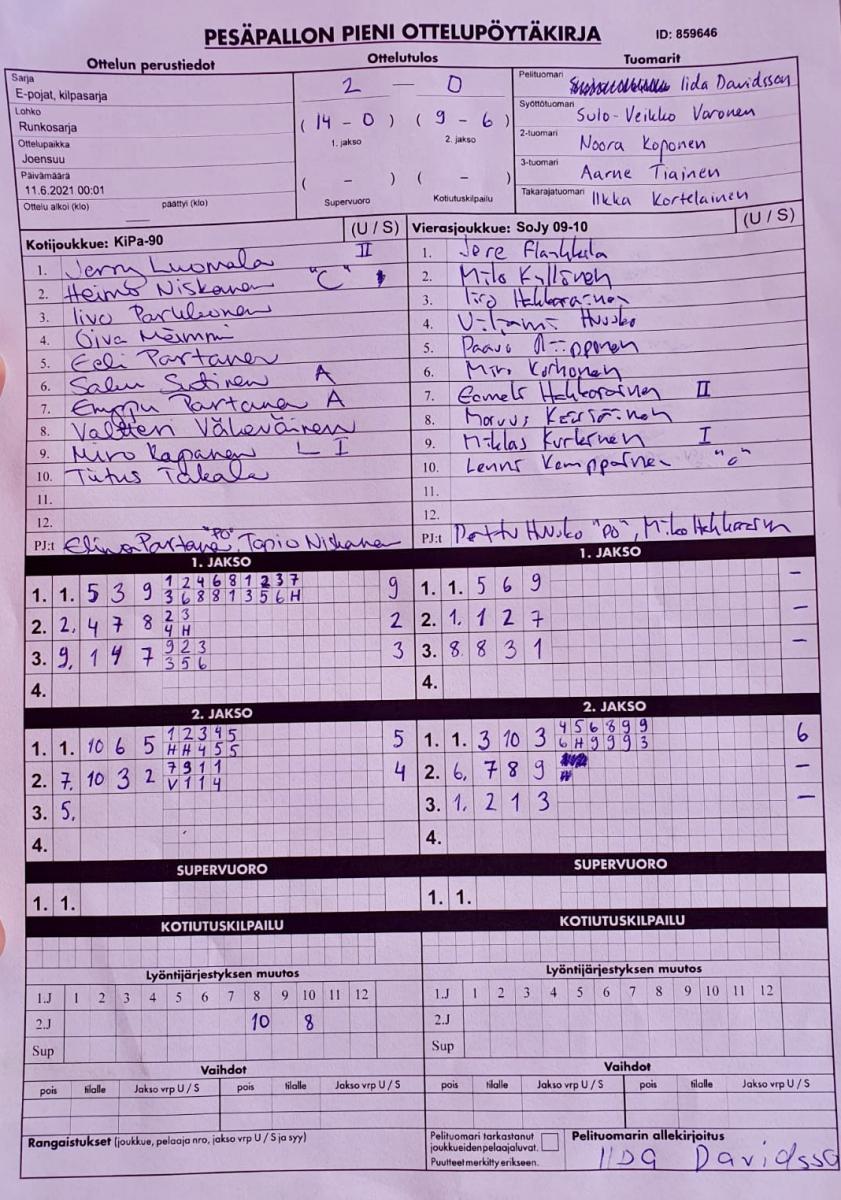 PESÄPALLON PIENI OTTELUPÖYTÄKIRJA ID: 859646
Ottelun perustiedot
Sarja
E-pojat, kilpasarja
Lohko
Runkosarja
Ottelupaikka
Joensuu
Päivämäärä
11.6.2021 00:01
Ottelu alkoi (klo) päättyi (klo)
Ottelutulos
2 — 0
( 14 - 0 ) ( 9 - 6 )
1. jakso 2. jakso
( - ) ( - )
Supervuoro Kotiutuskilpailu
Tuomarit
Pelituomari Iida Davidsson
Syöttötuomari Sulo-Veikko Varonen
2-tuomari Noora Koponen
3-tuomari Aarne Tiainen
Takarajatuomari Ilkka Kortelainen
Kotijoukkue: KiPa-90 (U / S)
1. Jerry Luomala II
2. Heimo Niskanen "C"
3. Iivo Parkkonen
4. Oiva
5. Eeli Partanen
6. Salu Sutinen A
7. Partanen A
8. Valtteri Väkeväinen
9. Miro Kapanen L I
10. Tiitus Takala
11.
12.
PJ:t Elina Partanen "PO", Tapio Niskanen
Vierasjoukkue: SoJy 09-10 (U / S)
1. Jere
2. Milo Kyllönen
3. Iiro Hakkarainen
4. Viljami Huusko
5. Paavo
6. Miro Korhonen
7. Eemeli Hakkarainen II
8.
9. Niklas Kurkinen I
10. Lenni Kemppainen "C"
11.
12.
PJ:t Perttu Huusko "PO", Miko Hakkarainen
1. JAKSO
1. 1. 5 3 9 1 2 4 6 8 1 2 3 7 9
3 6 8 8 1 3 5 6 H
2. 2. 4 7 8 2 3 2
4 H
3. 9. 1 4 7 9 2 3 3
3 5 6
4.
1. JAKSO
1. 1. 5 6 9 –
2. 1. 1 2 7 –
3. 8. 8 3 1 –
4.
2. JAKSO
1. 1. 10 6 5 1 2 3 4 5 5
H H 4 5 5
2. 7. 10 3 2 7 9 1 1 4
V 1 1 4
3. 5.
4.
2. JAKSO
1. 1. 3 10 3 4 5 6 8 9 9 6
6 H 9 9 9 3
2. 6. 7 8 9 –
3. 1. 2 1 3 –
4.
SUPERVUORO
1. 1.
SUPERVUORO
1. 1.
KOTIUTUSKILPAILU
KOTIUTUSKILPAILU
Lyöntijärjestyksen muutos
1.J 1 2 3 4 5 6 7 8 9 10 11 12
2.J 10 8
Sup
Lyöntijärjestyksen muutos
1.J 1 2 3 4 5 6 7 8 9 10 11 12
2.J
Sup
Vaihdot
pois tilalle Jakso vrp U / S pois tilalle Jakso vrp U / S
Vaihdot
pois tilalle Jakso vrp U / S pois tilalle Jakso vrp U / S
Rangaistukset (joukkue, pelaaja nro, jakso vrp U / S ja syy)
Pelituomari tarkastanut
joukkueidenpelaajaluvat.
Puutteet merkitty erikseen.
Pelituomarin allekirjoitus
IIDA Davidsso